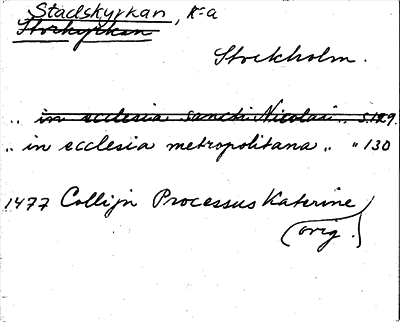 Stadskyrkan, k:a
Storkyrkan
Stockholm.
„ in ecclesia sancti Nicolai „ s.129.
„ in ecclesia metropolitana „ " 130
1477 Collijn Processus Katerine
(orig.)